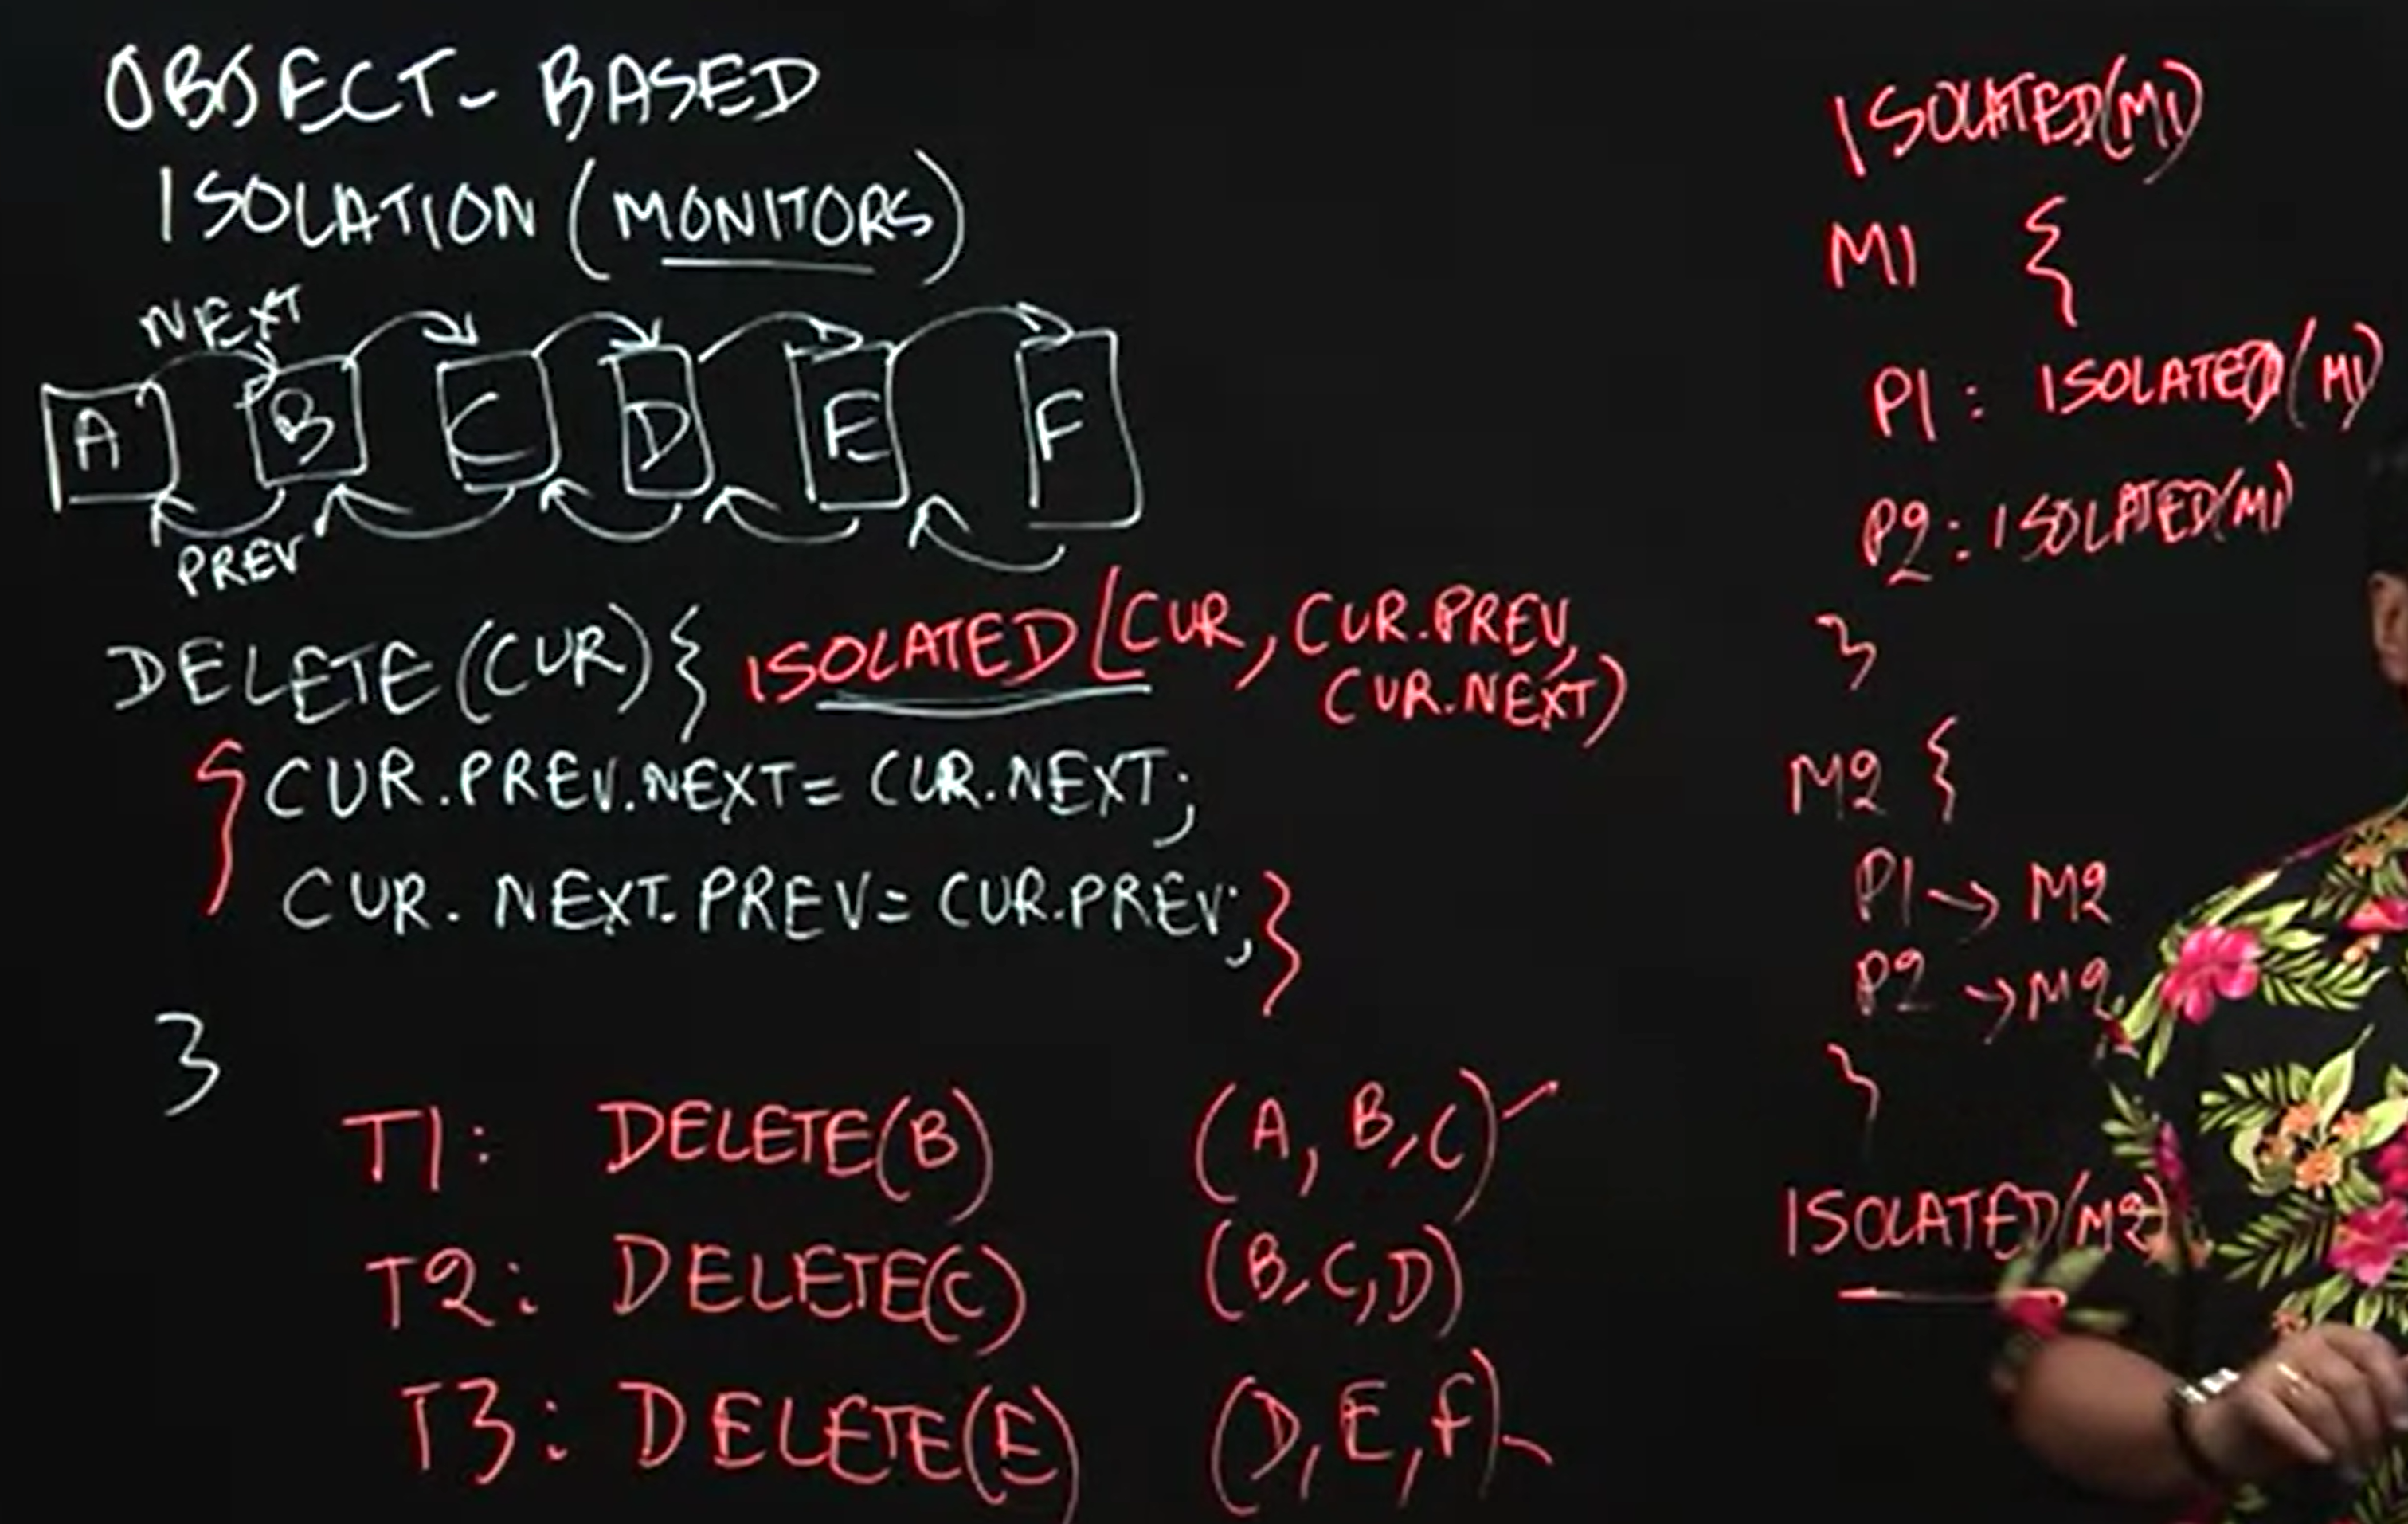 OBJECT-BASED
ISOLATION (MONITORS)
NEXT
A B C D E F
PREV
DELETE(CUR){ ISOLATED(CUR, CUR.PREV,
CUR.NEXT)
{ CUR.PREV.NEXT= CUR.NEXT;
CUR.NEXT.PREV= CUR.PREV; }
}
T1: DELETE(B) (A, B, C)
T2: DELETE(C) (B, C, D)
T3: DELETE(E) (D, E, F)
ISOLATED(M1)
M1 {
P1: ISOLATED(M1)
P2: ISOLATED(M1)
}
M2 {
P1 → M2
P2 → M2
}
ISOLATED(M2)